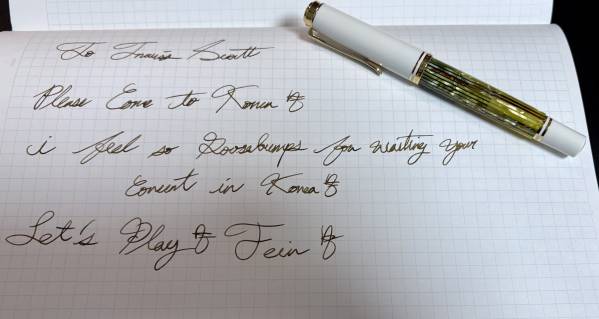 To Travis Scott
Please Come to Korea
i feel so Goosebumps for waiting your
Concert in Korea
Let's Play Fein